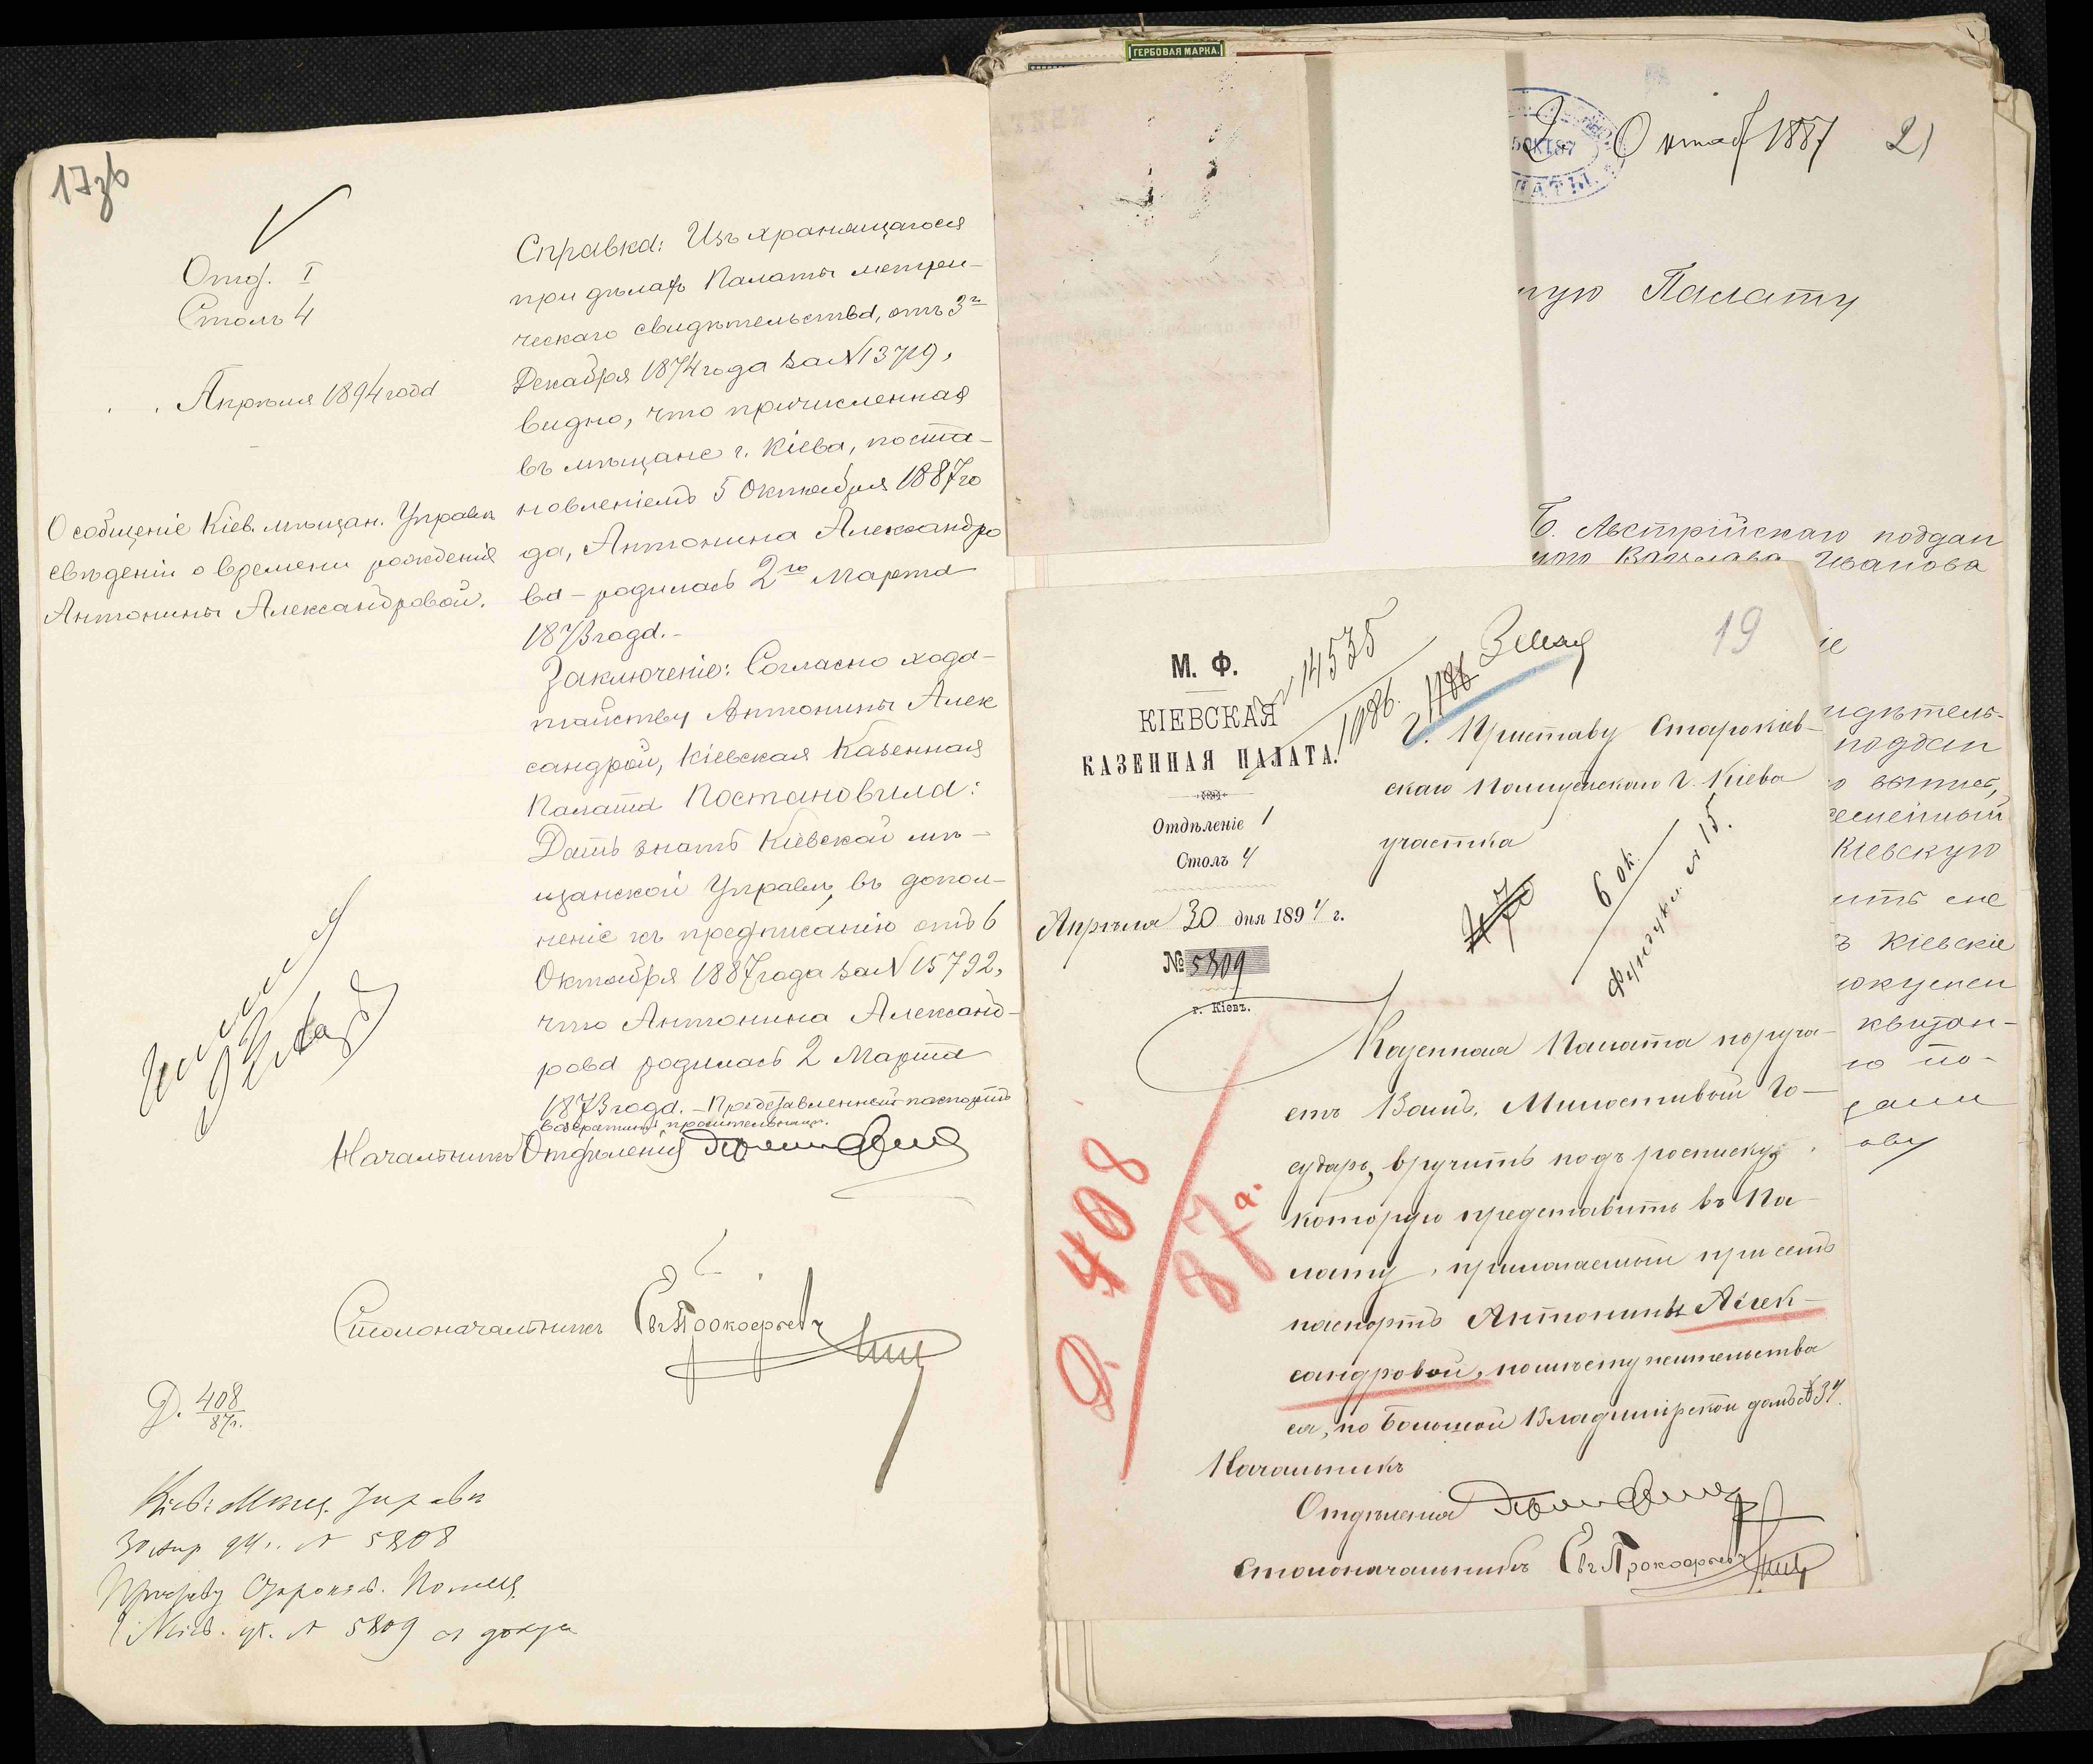 17зб
Отд. I
Столъ 4
Апрѣля 1894 года
О собщеніе Кіев. мѣщан. Управѣ
свѣденіи о времени рожденія
Антонины Александровой.
Справка: Изъ хранящагося
при дѣлахъ Палаты метри-
ческаго свидѣтельства, отъ 3го
Декабря 1874 года за № 13719,
видно, что причисленная
въ мѣщане г. Кіева, поста-
новленіемъ 5 Октября 1887 го
да, Антонина Александро
ва - родилась 2го Марта
1873 года. -
Заключеніе: Согласно хода-
тайству Антонины Алек
сандрой, Кіевская Казенная
Палата Постановила:
Дать знать Кіевской мѣ-
щанской Управѣ, въ допол-
неніе къ предписанію отъ 6
Октября 1887 года за № 15792,
что Антонина Александ-
рова родилась 2 Марта
1873 года. - Представленный паспортъ
возвратить просительницѣ.
Начальникъ Отдѣленія
Столоначальникъ Св. Прокофьевъ
Д. 408
87г.
Кіев. Мѣщ. Управѣ
30 апр 94 г. № 5808
Приставу Старокіев. Полиц.
Кіев. уч. № 5809
ГЕРБОВАЯ МАРКА.
5 ОКТ 87
ПАТЫ.
2 Октяб 1887
21
ную Палату
Б. Австрійскаго поддан
наго Вацлава Иванова
М. Ф.
КІЕВСКАЯ
КАЗЕННАЯ ПАЛАТА.
Отдѣленіе 1
Столъ 4
Апрѣля 30 дня 1894 г.
№ 5809
г. Кіевъ.
№ 14535
1986.
3 Мая
19
Г. Приставу Старокіев-
скаго Полицейскаго г. Кіева
участка
6 ок.
№ 15.
Казенная Палата поруча-
етъ Вамъ, Милостивый Го-
сударь, вручить подъ росписку,
которую представить въ Па-
лату, прилагаемый при семъ
паспортъ Антонины Алек-
сандровой, по мѣсту жительства
ея, по Большой Владимірской домъ № 34.
Начальникъ
Отдѣленія
Столоначальникъ Св. Прокофьевъ
Д. 408
87 г.
ие
идѣтель-
поддан
о выпис,
емейный
Кіевскую
ить сие
ъ Кіевскіе
окупен
квитан-
ю по-
дани
ову